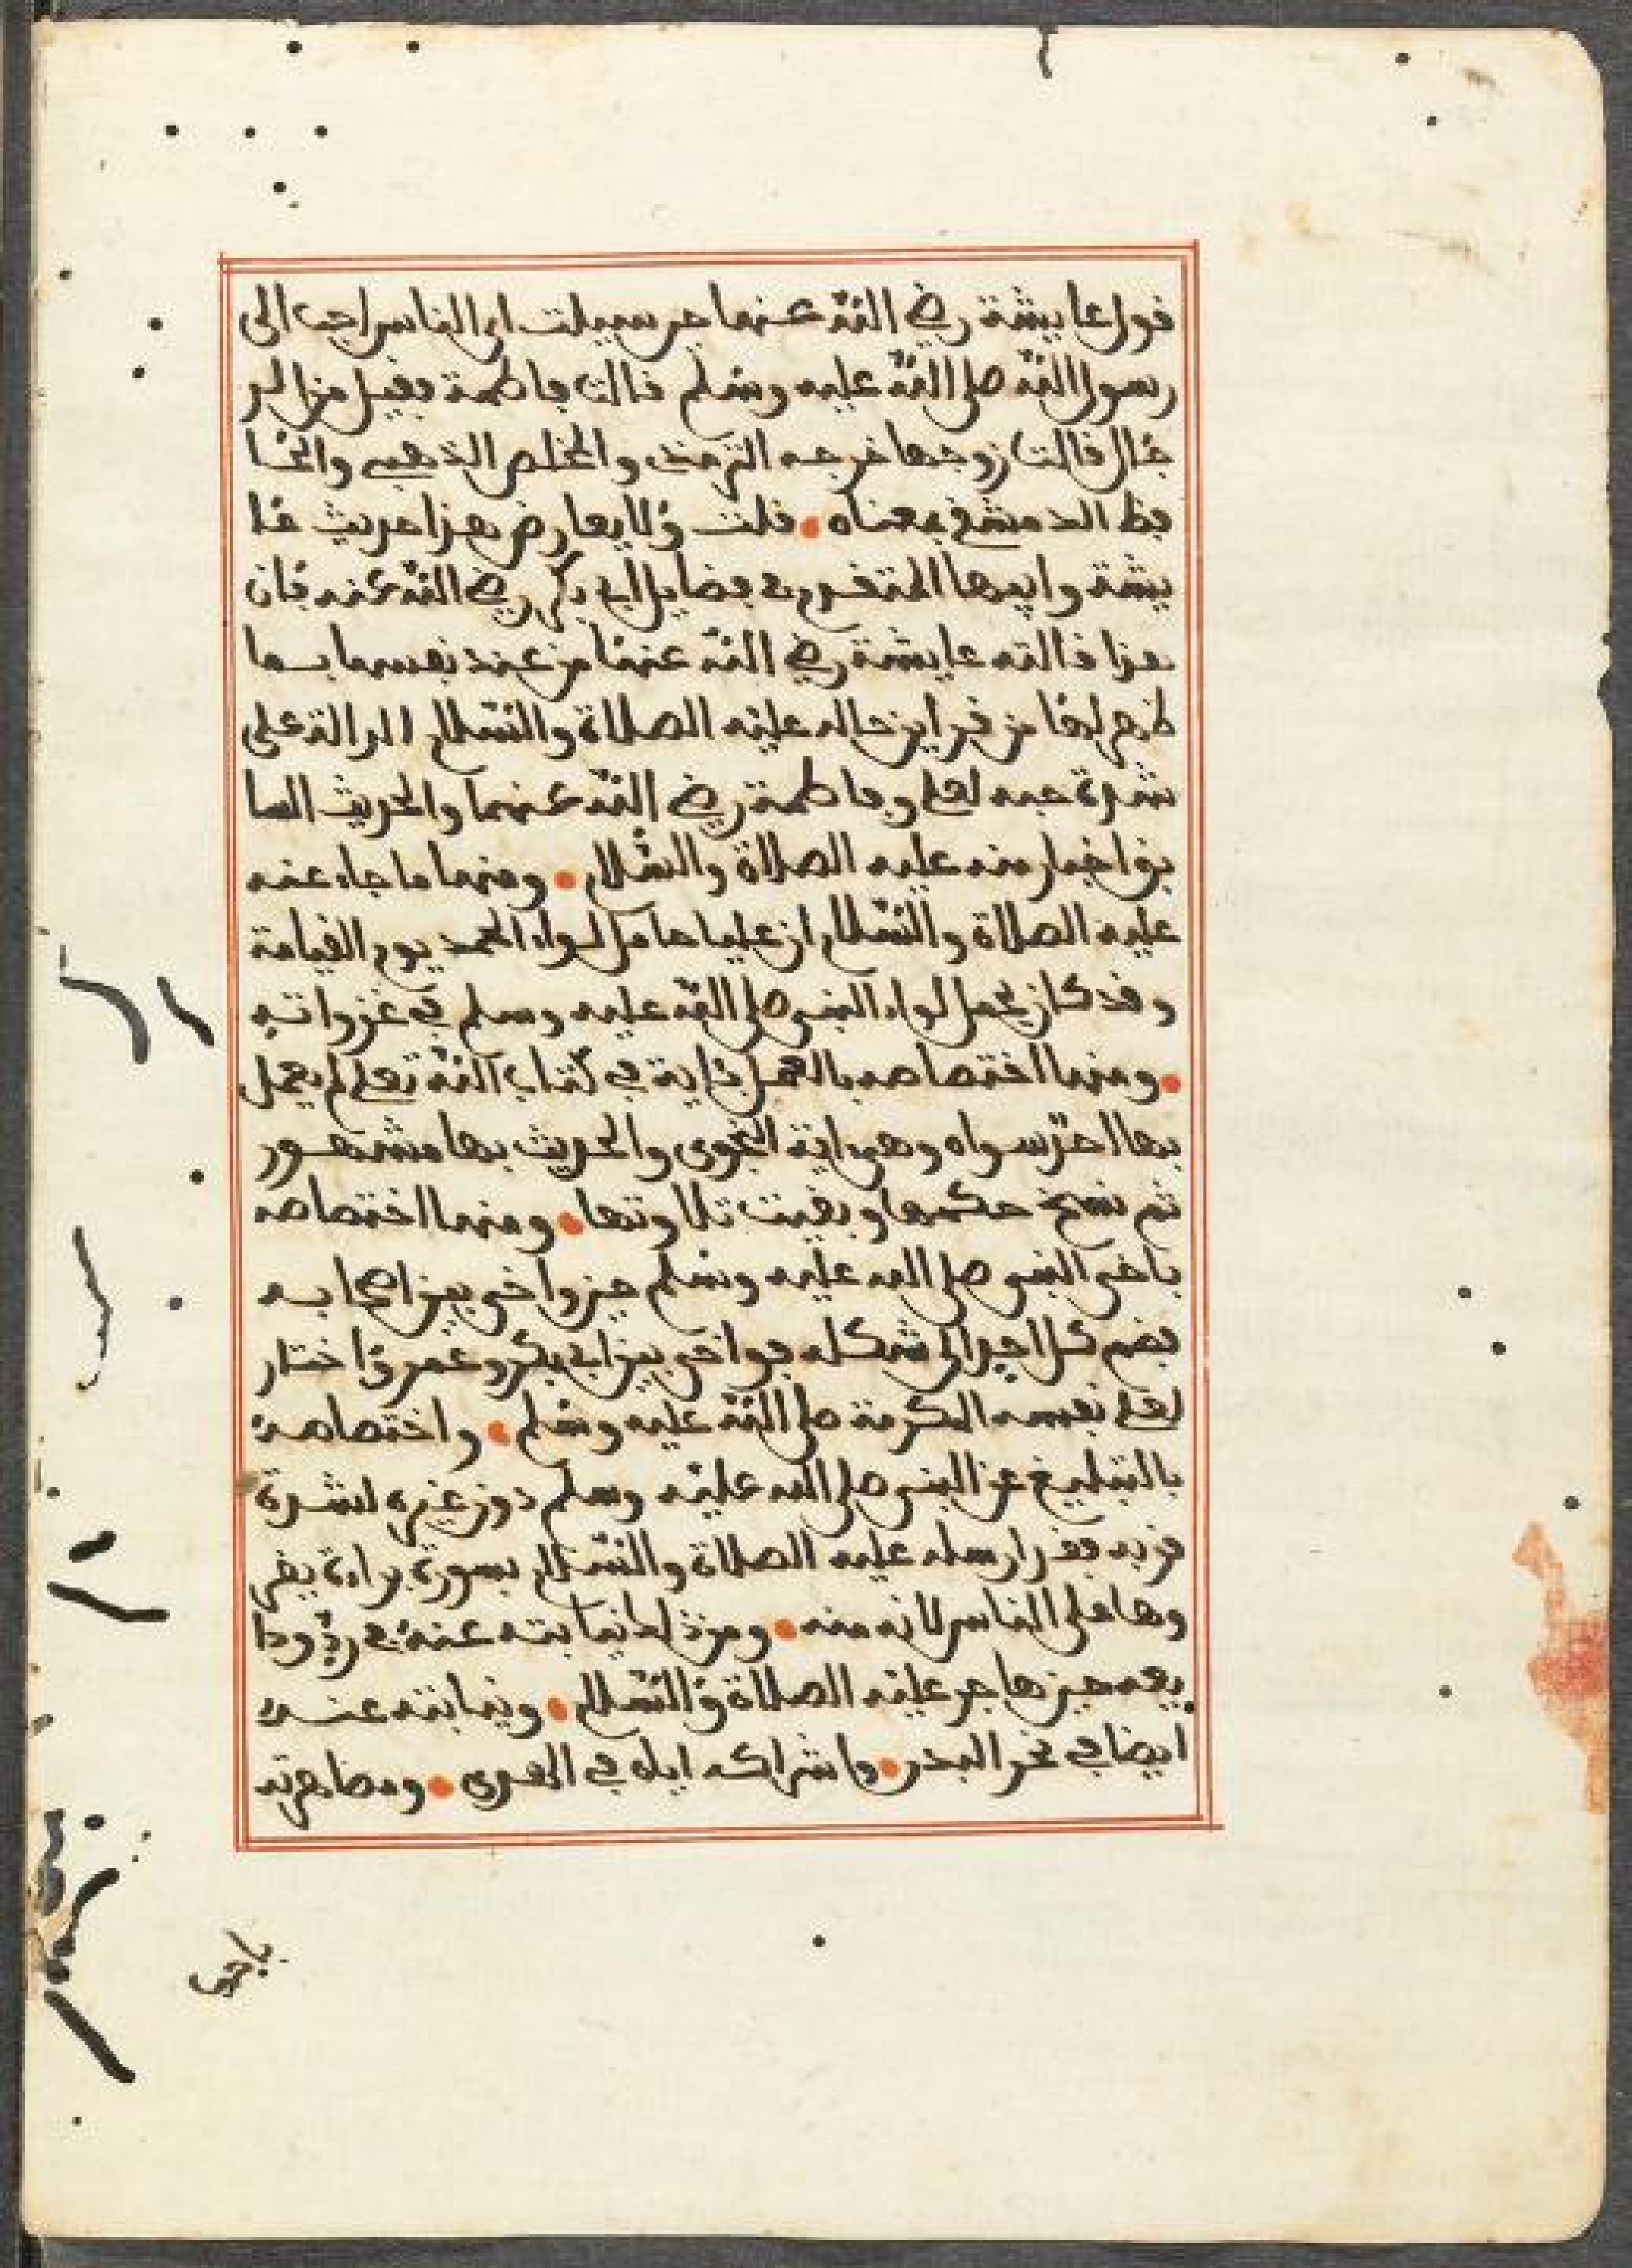 قول عايشة رضي الله عنها حين سيلت اي الناس احب الى
رسول الله صلى الله عليه وسلم قالت فاطمة فقيل من الر
جال قالت زوجها خرجه الترمذي والمخلص الذهبي والحا
فظ الدمشقي بمعناه قلت ولا يعارض هذا حديث عا
يشة وابيها المتقدم في فضايل ابي بكر رضي الله عنه فان
هذا قالته عايشة رضي الله عنها من عند نفسها بما
ظهر لها من قراين حاله عليه الصلاة والسلام الدالة على
شدة حبه لعلي وفاطمة رضي الله عنهما والحديث السا
بق اخبار منه عليه الصلاة والسلام ومنها ما جاء عنه
عليه الصلاة والسلام ان عليا حامل لواء الحمد يوم القيامة
وقد كان يحمل لواء النبي صلى الله عليه وسلم في غزواته
ومنها اختصاصه بالعمل بآية في كتاب الله تعلى لم يعمل
بها احد سواه وهي اية النجوى والحديث بها مشهور
ثم نسخ حكمها وبقيت تلاوتها ومنها اختصاصه
باخي النبي صلى الله عليه وسلم حين واخى بين اصحابه
بضم كل احد الى شكله فواخى بين ابي بكر وعمر واختار
لعلي نفسه المكرمة صلى الله عليه وسلم واختصاصه
بالتبليغ عن النبي صلى الله عليه وسلم دون غيره لشدة
قربه فقد ارسله عليه الصلاة والسلام بسورة براءة يقر
وها على الناس لانه منه ومن ذلك نيابته عنه في رد ودا
يعه حين هاجر عليه الصلاة والسلام ونيابته عنه
ايضا في نحر البدن واشراكه اياه في الهدي ومصاهرته